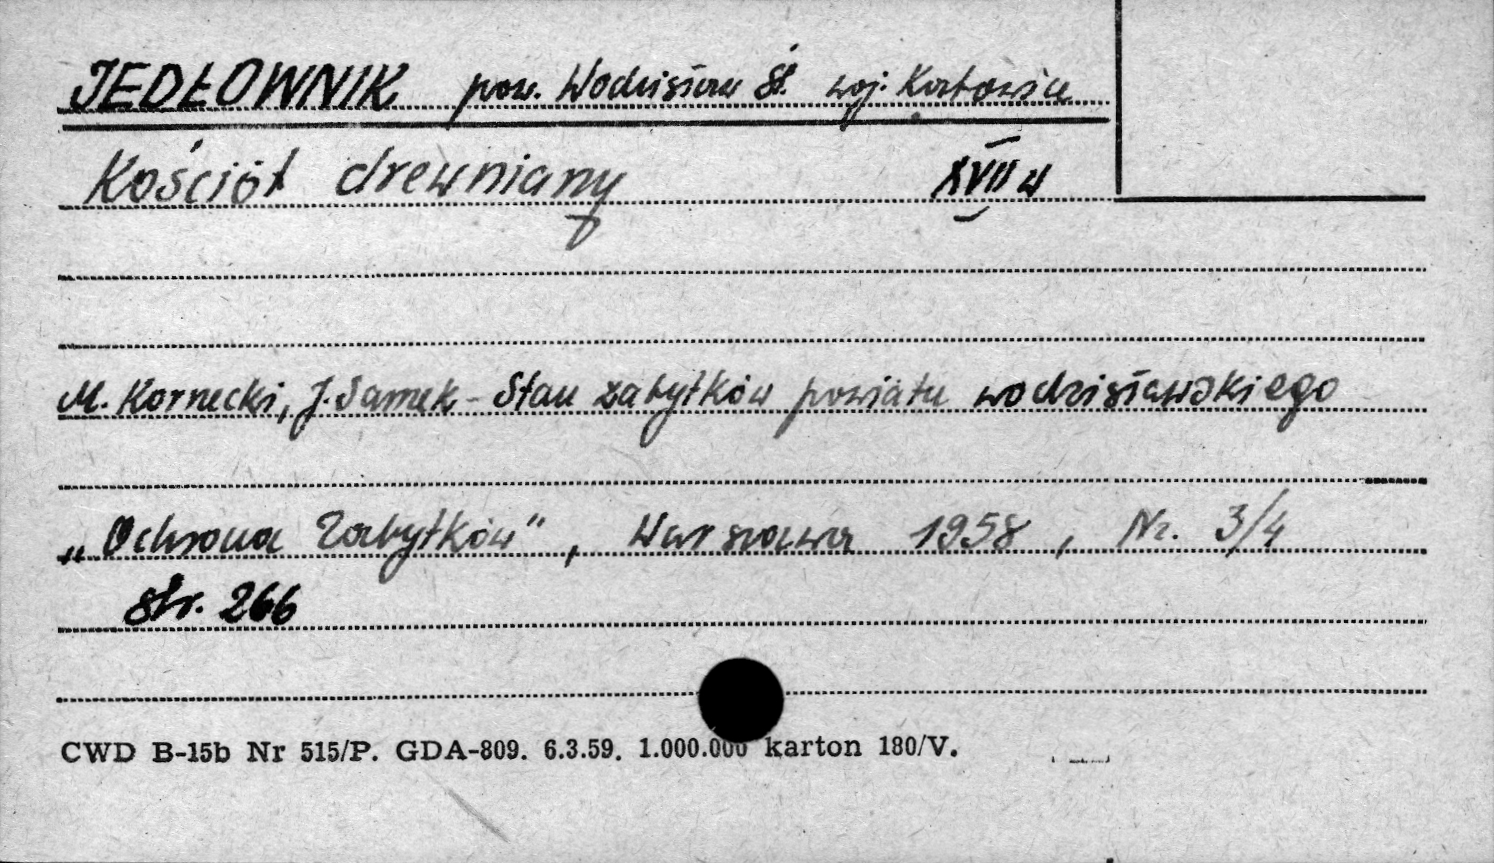 JEDŁOWNIK pow. Wodzisław Śl. woj. Katowice
Kościół drewniany XVII w
M. Kornecki, J. Samek - Stan zabytków powiatu wodzisławskiego
„Ochrona Zabytków", Warszawa 1958, Nr. 3/4
str. 266
CWD B-15b Nr 515/P. GDA-809. 6.3.59. 1.000.000 karton 180/V.